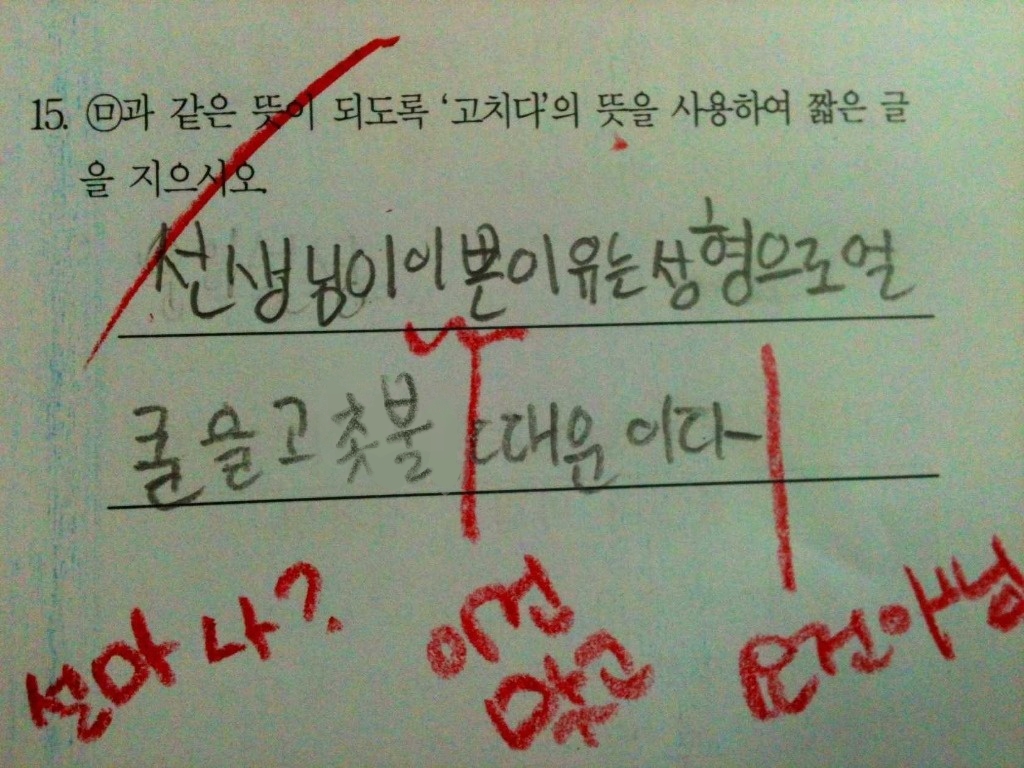 15. ㉤과 같은 뜻이 되도록 ‘고치다’의 뜻을 사용하여 짧은 글
을 지으시오.
선생님이 이쁜이유는 성형으로 얼
굴을 고촛불 때문이다
설마 나? 이건 맞고 요건 아님